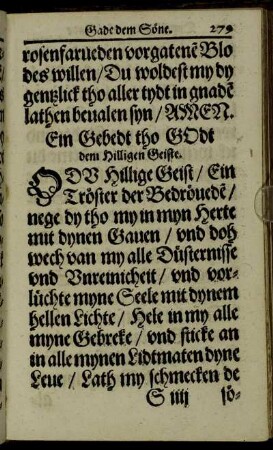 Gade dem Söne. 279
rosenfarueden vorgatenē Blo
des willen/Du woldest my dy
gentzlick tho aller tydt in gnadē
lathen beualen syn/AMEN.
Ein Gebedt tho GOdt
dem Hilligen Geiste.
O DV Hillige Geist/Ein
Tröster der Bedröuedē/
nege dy tho my in myn Herte
mit dynen Gauen/vnd doh
wech van my alle Düsternisse
vnd Vnreinicheit/vnd vor-
lüchte myne Seele mit dynem
hellen Lichte/Hele in my alle
myne Gebreke/vnd sticke an
in alle mynen Lidtmaten dyne
Leue/Lath my schmecken de
S iiij sö-